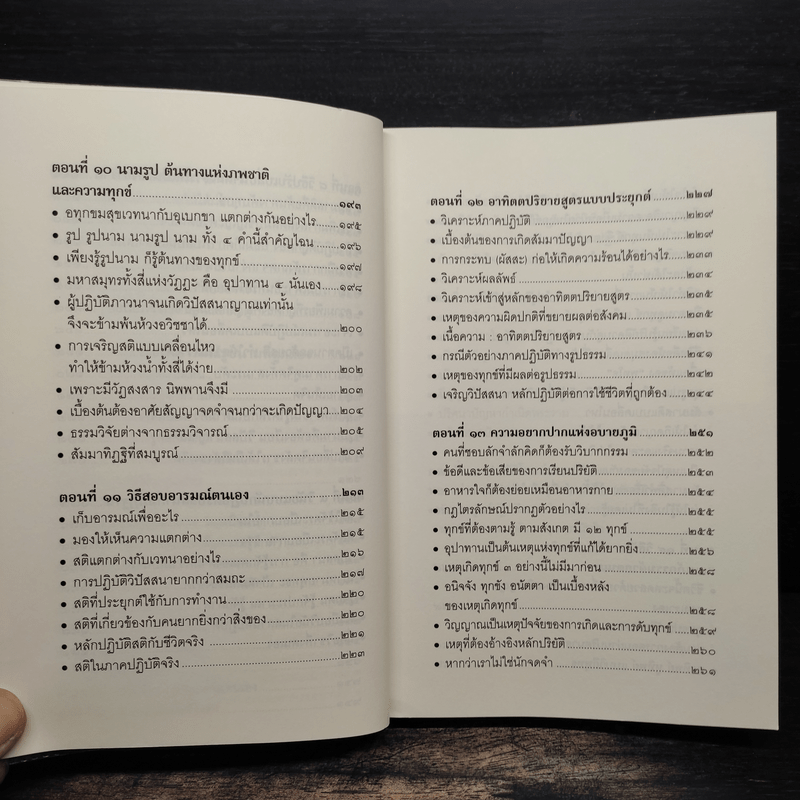 ตอนที่ ๑๐ นามรูป ต้นทางแห่งภพชาติ
และความทุกข์........................................๑๙๓
• อทุกขมสุขเวทนากับอุเบกขา แตกต่างกันอย่างไร......๑๙๕
• รูป รูปนาม นามรูป นาม ทั้ง ๔ คำนี้สำคัญไฉน......๑๙๖
• เพียงรู้รูปนาม ก็รู้ต้นทางของทุกข์......................๑๙๗
• มหาสมุทรทั้งสี่แห่งวัฏฏะ คือ อุปาทาน ๔ นั่นเอง.....๑๙๘
• ผู้ปฏิบัติภาวนาจนเกิดวิปัสสนาญาณเท่านั้น
จึงจะข้ามพ้นห้วงอวิชชาได้..............................๒๐๐
• การเจริญสติแบบเคลื่อนไหว
ทำให้ข้ามห้วงน้ำทั้งสี่ได้ง่าย............................๒๐๒
• เพราะมีวัฏสงสาร นิพพานจึงมี..........................๒๐๓
• เบื้องต้นต้องอาศัยสัญญาจดจำจนกว่าจะเกิดปัญญา...๒๐๔
• ธรรมวิจัยต่างจากธรรมวิจารณ์..........................๒๐๕
• สัมมาทิฏฐิที่สมบูรณ์....................................๒๐๙
ตอนที่ ๑๑ วิธีสอบอารมณ์ตนเอง ......................๒๑๓
• เก็บอารมณ์เพื่ออะไร....................................๒๑๕
• มองให้เห็นความแตกต่าง...............................๒๑๕
• สติแตกต่างกับเวทนาอย่างไร...........................๒๑๖
• การปฏิบัติวิปัสสนายากกว่าสมถะ......................๒๑๗
• สติที่ประยุกต์ใช้กับการทำงาน..........................๒๒๐
• สติที่เกี่ยวข้องกับคนยากยิ่งกว่าสิ่งของ................๒๒๐
• หลักปฏิบัติสติกับชีวิตจริง..............................๒๒๑
• สติในภาคปฏิบัติจริง....................................๒๒๓
ตอนที่ ๑๒ อาทิตตปริยายสูตรแบบประยุกต์...........๒๒๗
• วิเคราะห์ภาคปฏิบัติ.....................................๒๒๙
• เบื้องต้นของการเกิดสัมมาปัญญา......................๒๒๙
• การกระทบ (ผัสสะ) ก่อให้เกิดความร้อนได้อย่างไร....๒๓๓
• วิเคราะห์ผลลัพธ์.........................................๒๓๔
• วิเคราะห์เข้าสู่หลักของอาทิตตปริยายสูตร..............๒๓๕
• เหตุของความผิดปกติที่ขยายผลต่อสังคม..............๒๓๕
• เนื้อความ : อาทิตตปริยายสูตร.........................๒๓๖
• กรณีตัวอย่างภาคปฏิบัติทางรูปธรรม...................๒๔๑
• เหตุของทุกข์ที่มีผลต่อรูปธรรม.........................๒๔๒
• เจริญวิปัสสนา หลักปฏิบัติต่อการใช้ชีวิตที่ถูกต้อง.....๒๔๔
ตอนที่ ๑๓ ความอยากปากแห่งอบายภูมิ...............๒๕๑
• คนที่ชอบลักจำลักคิดก็ต้องรับวิบากกรรม..............๒๕๒
• ข้อดีและข้อเสียของการเรียนปริยัติ.....................๒๕๓
• อาหารใจก็ต้องย่อยเหมือนอาหารกาย..................๒๕๔
• กฎไตรลักษณ์ปรากฏตัวอย่างไร........................๒๕๕
• ทุกข์ที่ต้องตามรู้ ตามสังเกต มี ๑๒ ทุกข์..............๒๕๕
• อุปาทานเป็นต้นเหตุแห่งทุกข์ที่แก้ได้ยากยิ่ง...........๒๕๖
• เหตุเกิดทุกข์ ๓ อย่างนี้ไม่มีมาก่อน....................๒๕๘
• อนิจจัง ทุกขัง อนัตตา เป็นเบื้องหลัง
ของเหตุเกิดทุกข์..........................................๒๕๘
• วิญญาณเป็นเหตุปัจจัยของการเกิดและการดับทุกข์.....๒๕๙
• เหตุที่ต้องอ้างอิงหลักปริยัติ.............................๒๖๐
• หากว่าเราไม่ใช่นักจดจำ.................................๒๖๑